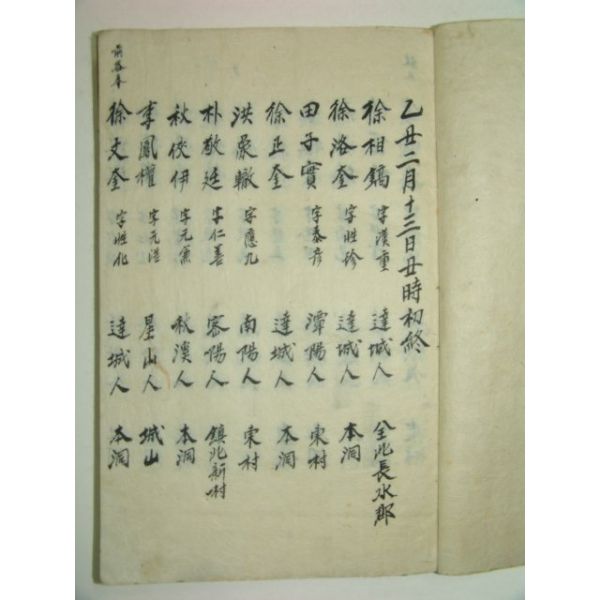 乙丑二月十三日丑時初終
徐相鎬 字漢重 達城人 全北長水郡
徐洛奎 字性珍 達城人 本洞
田子實 字泰彦 潭陽人 東村
徐正奎 達城人 本洞
洪轍 字應九 南陽人 東村
朴敬廷 字仁善 密陽人 鎮北新村
秋俠伊 字元兼 秋溪人 本洞
李鳳權 字元浩 星山人 城山
徐丈奎 字性化 達城人 本洞
前參奉